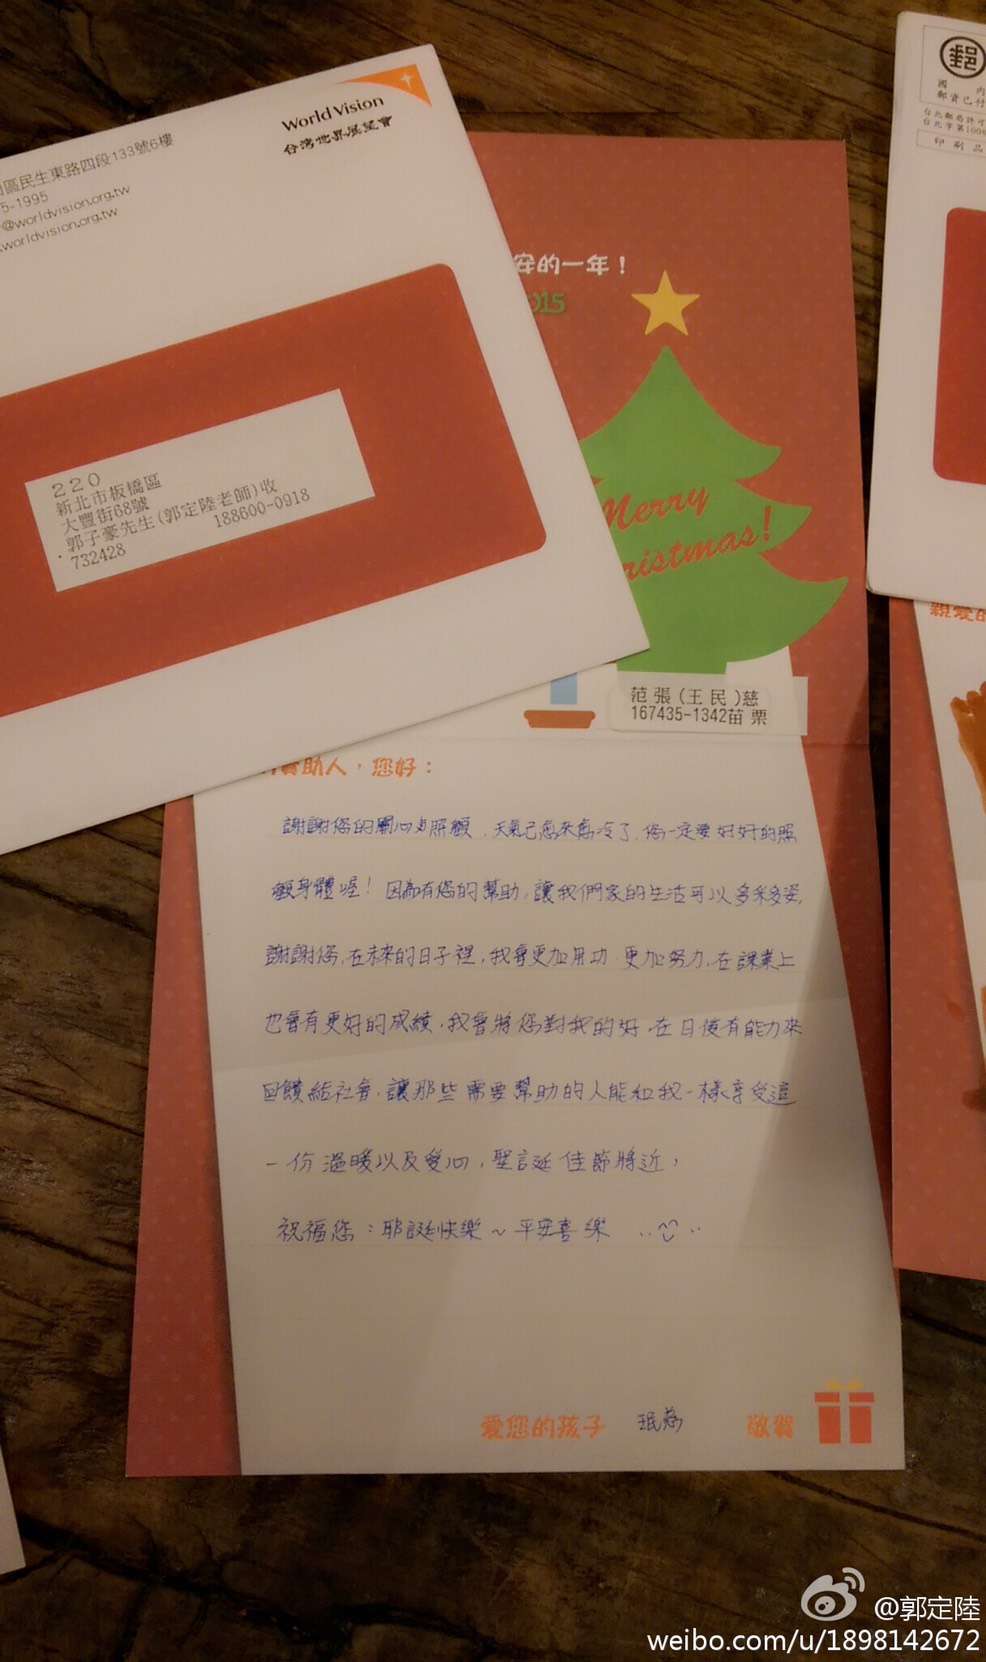 World Vision
台灣世界展望會
區民生東路四段133號6樓
5-1995
@worldvision.org.tw
worldvision.org.tw
220
新北市板橋區
大豐街68號
郭子豪先生(郭定陸老師)收
188600-0918
732428
郵
國 內
郵資已付
台北郵局許可
印刷品
安的一年！
2015
Merry
Christmas!
范張(王民)慈
167435-1342苗栗
贊助人，您好：
謝謝您的關心與照顧，天氣已愈來愈冷了，您一定要好好的照
顧身體喔！因為有您的幫助，讓我們家的生活可以多彩多姿，
謝謝您，在未來的日子裡，我會更加用功、更加努力，在課業上
也會有更好的成績，我會將您對我的好，在日後有能力來
回饋給社會，讓那些需要幫助的人能和我一樣享受這
一份溫暖以及愛心，聖誕佳節將近，
祝福您：耶誕快樂～平安喜樂
愛您的孩子 敬賀
親愛的
@郭定陸
weibo.com/u/1898142672